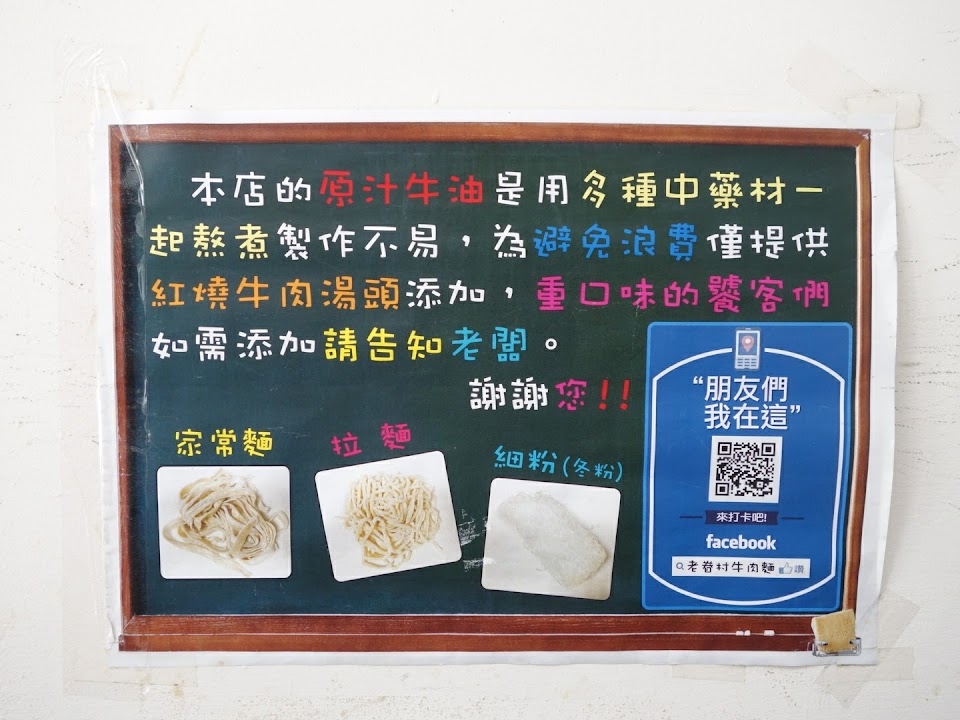 本店的原汁牛油是用多種中藥材一
起熬煮製作不易，為避免浪費僅提供
紅燒牛肉湯頭添加，重口味的饕客們
如需添加請告知老闆。
謝謝您!!
家常麵
拉麵
細粉(冬粉)
“朋友們
我在這”
來打卡吧!
facebook
老眷村牛肉麵 讚